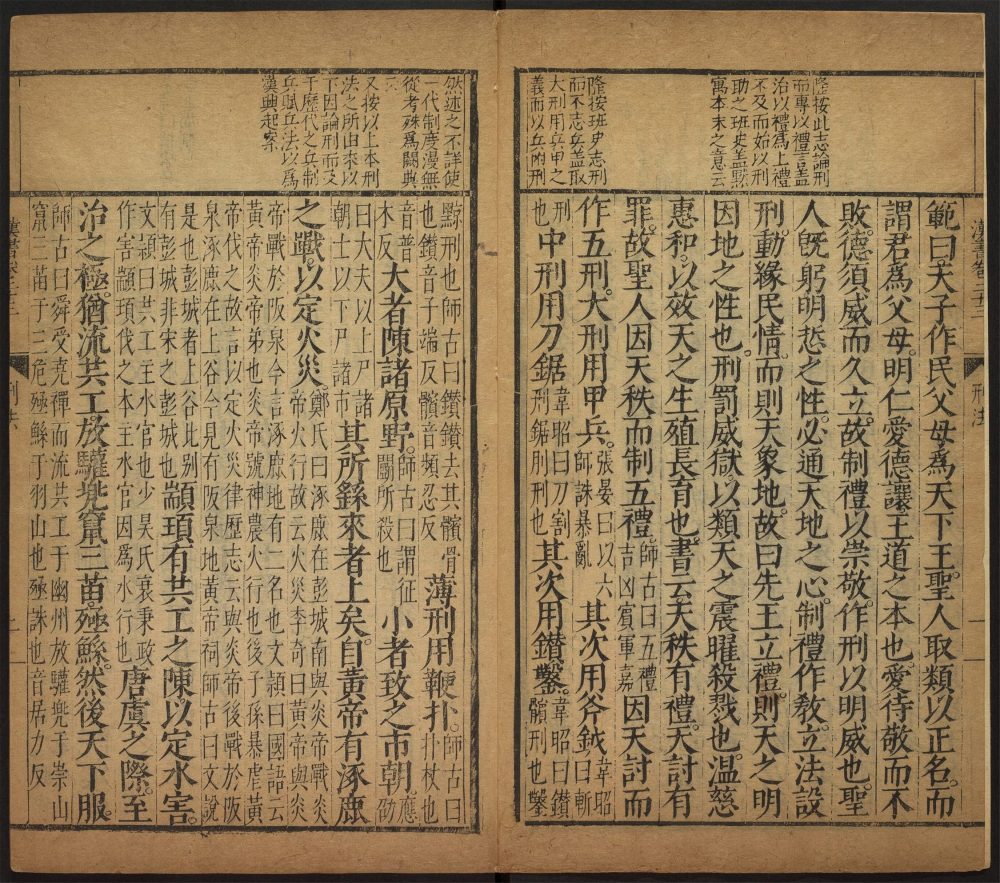 隆按此志論刑
而專以禮言盖
治以禮爲上禮
不及而始以刑
助之班史盖黙
寓本末之意云
隆按班史志刑
而不志兵盖取
大刑用兵甲之
義而以兵附刑
刑法
範曰天子作民父母爲天下王聖人取類以正名而
謂君爲父母明仁愛德讓王道之本也愛待敬而不
敗德須威而久立故制禮以崇敬作刑以明威也聖
人旣躬明悊之性必通天地之心制禮作敎立法設
刑動緣民情而則天象地故曰先王立禮則天之明
因地之性也刑罰威獄以類天之震曜殺戮也温慈
惠和以效天之生殖長育也書云天秩有禮天討有
罪故聖人因天秩而制五禮師古曰五禮吉凶賓軍嘉因天討而
作五刑大刑用甲兵張晏曰以六師誅暴亂其次用斧鉞韋昭曰斬
刑也中刑用刀鋸韋昭曰刀割刑鋸刖刑也其次用鑽鑿韋昭曰鑽髕刑也鑿
然述之不詳使
一代制度漫無
從考殊爲闕典
云
又按以上本刑
法之所由來以
下因論刑而及
于歷代之兵制
兵賦兵法以爲
漢興起案
黥刑也師古曰鑽鑽去其髕骨也鑽音子端反髕音頻忍反薄刑用鞭扑師古曰扑杖也
音普木反大者陳諸原野師古曰謂征鬭所殺也小者致之市朝應劭
曰大夫以上尸諸朝士以下尸諸市其所繇來者上矣自黃帝有涿鹿
之戰以定火災鄭氏曰涿鹿在彭城南與炎帝戰炎帝火行故云火災李奇曰黃帝與炎
帝戰於阪泉今言涿鹿地有二名也文頴曰國語云黃帝炎帝弟也炎帝號神農火行也後子孫暴虐黃
帝伐之故言以定火災律歷志云與炎帝後戰於阪泉涿鹿在上谷今見有阪泉地黃帝祠師古曰文說
是也彭城者上谷比别有彭城非宋之彭城也顓頊有共工之陳以定水害
文頴曰共工主水官也少昊氏衰秉政作害顓頊伐之本主水官因爲水行也唐虞之際至
治之極猶流共工放驩兠竄三苗殛鯀然後天下服
師古曰舜受堯禪而流共工于幽州放驩兠于崇山竄三苗于三危殛鯀于羽山也殛誅也音居力反